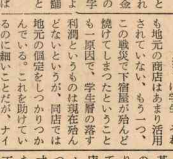 も地元の商店はあまり活用
されていない、もう一つ、
この戦災で下宿屋が殆んど
焼けてしまつたということ
も一原因で、学生層の落す
利潤というものは現在殆ん
どないというが、同店では
地元の個定をしつかりつか
んでいる。これを助けてい
るのに細いことだが、ナイ